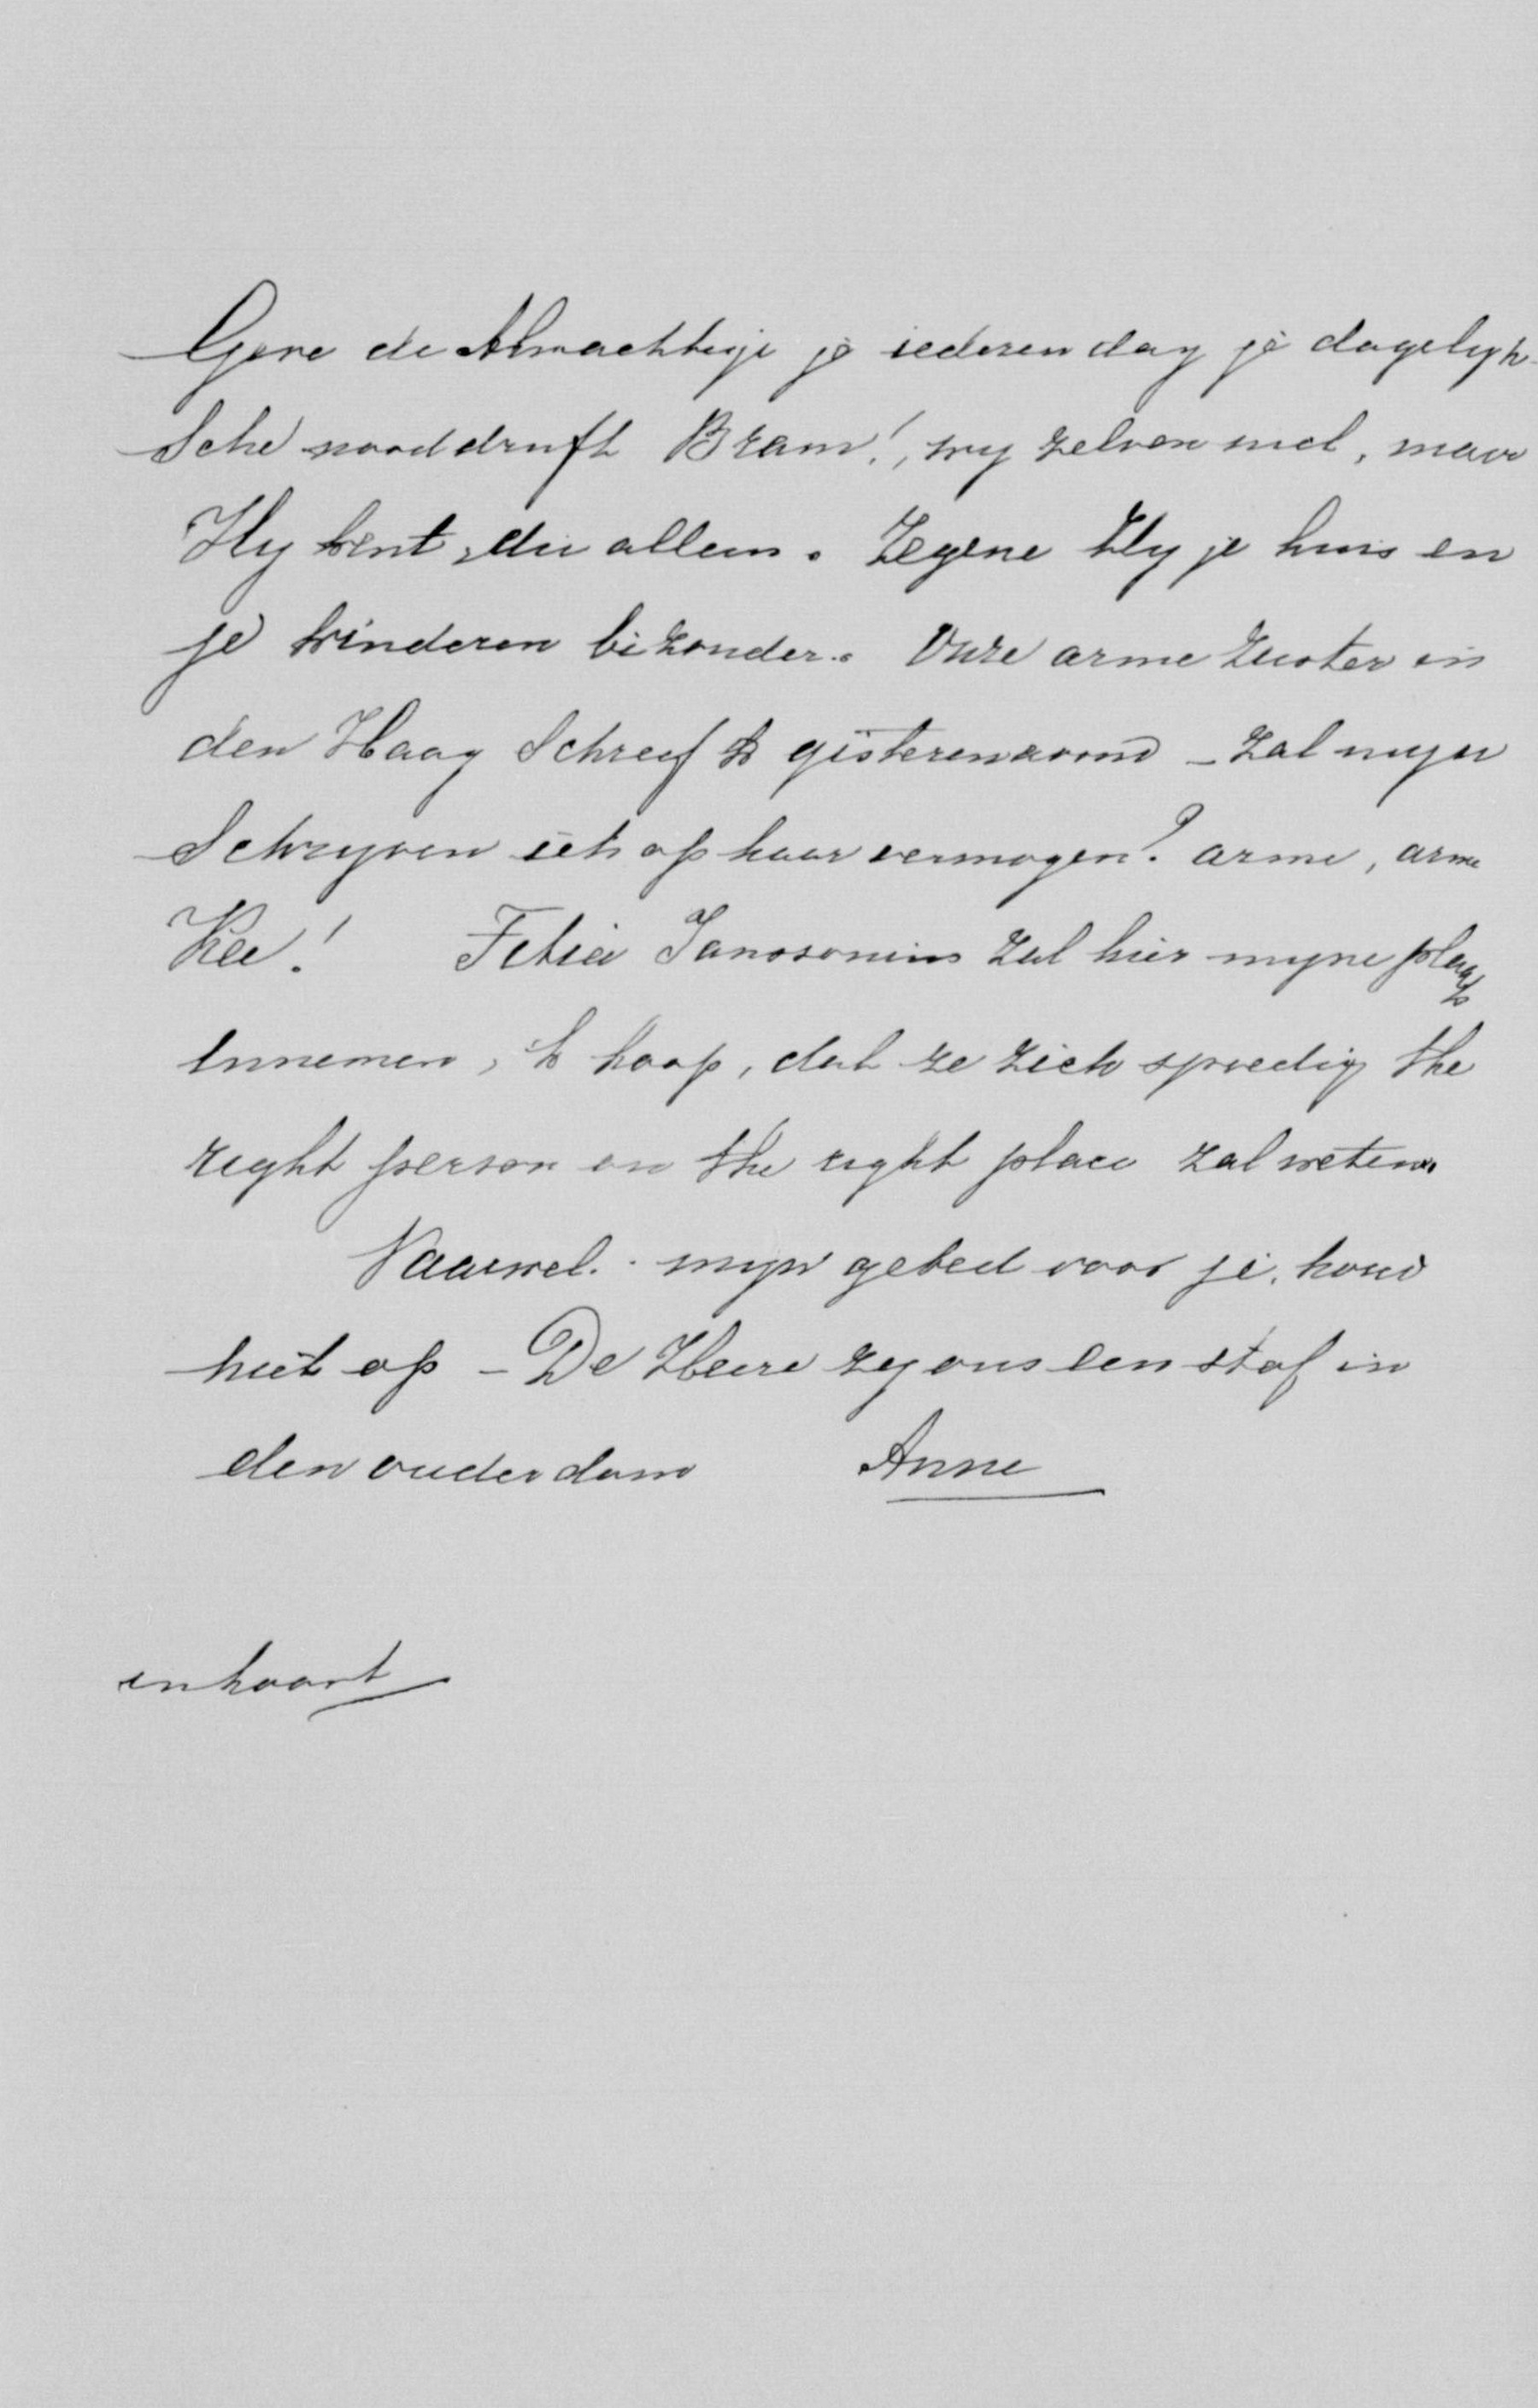 Geve de Almachtige je iederen dag je dagelyk-
sche nooddruft Bram!, wy zelven niet, maar
Hy kent, die alleen. Zegene Hy je huis en
je kinderen bizonder. Onze arme zuster in
den Haag schreef ik gisterenavond – zal myn
schryven iets op haar vermogen? arme, arme
Kee! Fetia Janssonius zal hier myne plaats
innemen, 'k hoop, dat ze zich spoedig the
right person on the right place zal weten.
Vaarwel. myn gebed voor je, houd
niet op – De Heere zy ons een staf in
den ouderdom Anne